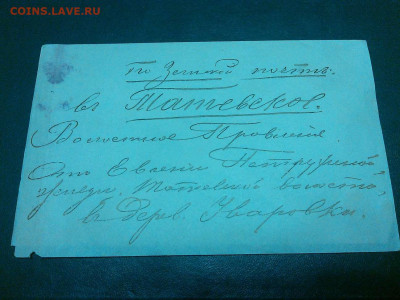 COINS.LAVE.RU
По Земской почте.
въ Татевское.
Волостное Провление
Отъ Евгении Петруниной
Татевской волости,
въ дерев. Уваровки.